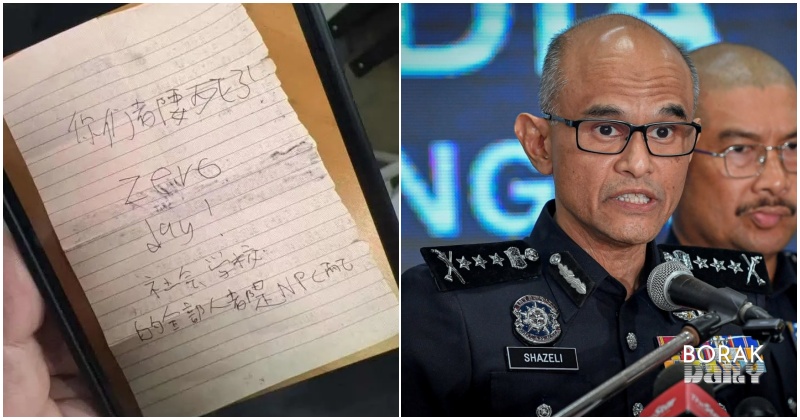 你们都要死了!
zero
day!
社会 学校
的全部人都是NPC而已
DIA
NG
SHAZELI
BORAK
DAILY